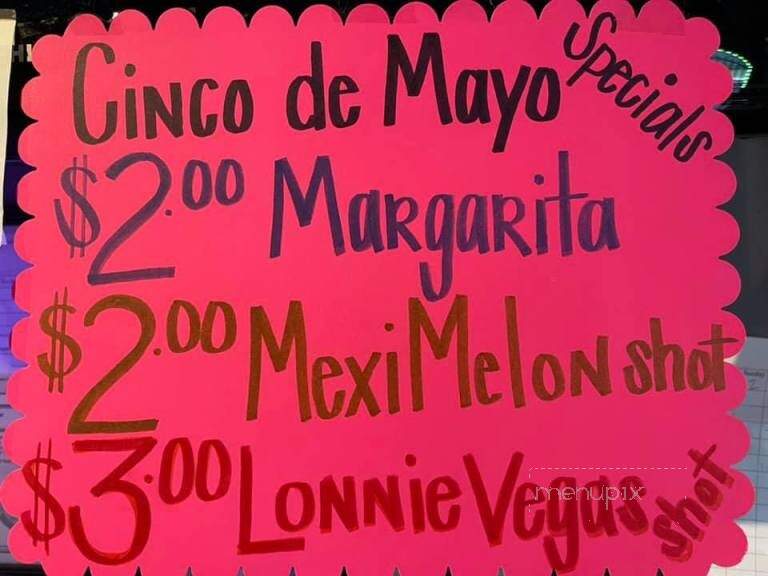 Cinco de Mayo Specials
$2.00 Margarita
$2.00 MexiMelon shot
$3.00 Lonnie Vegas shot
menupix